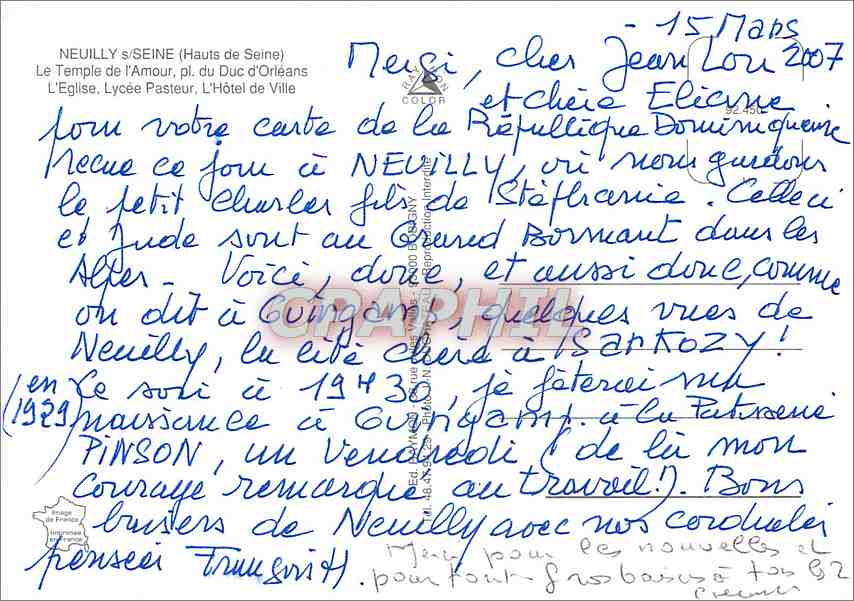 NEUILLY s/SEINE (Hauts de Seine)
Le Temple de l'Amour, pl. du Duc d'Orléans
L'Eglise, Lycée Pasteur, L'Hôtel de Ville
RAYMON
COLOR
92.450
- 15 Mars
2007
Merci, cher Jean Lou
et chère Eliane
pour votre carte de la République Dominiquaine
reçue ce jour à NEUILLY, où nous gardons
le petit Charles fils de Stéphanie. Celle ci
et Jude sont au Grand Bornant dans les
Alpes - Voici, donc, et aussi donc, comme
on dit à Guingamp, quelques vues de
Neuilly, la cité chère à SARKOZY!
Ce soir à 19H30, je fêterai ma
(en 1929)
naissance à Guingamp. à la Patisserie
PINSON, un Vendredi (de là mon
courage remarqué au travail!). Bons
baisers de Neuilly avec nos cordiales
pensées François H.
Merci pour les nouvelles et
pour tout. Gros baisers à tous les 2
Image de France
Imprimée en France
Ed. RAYMON
93000 BOBIGNY
Reproduction Interdite
GRAPHIL